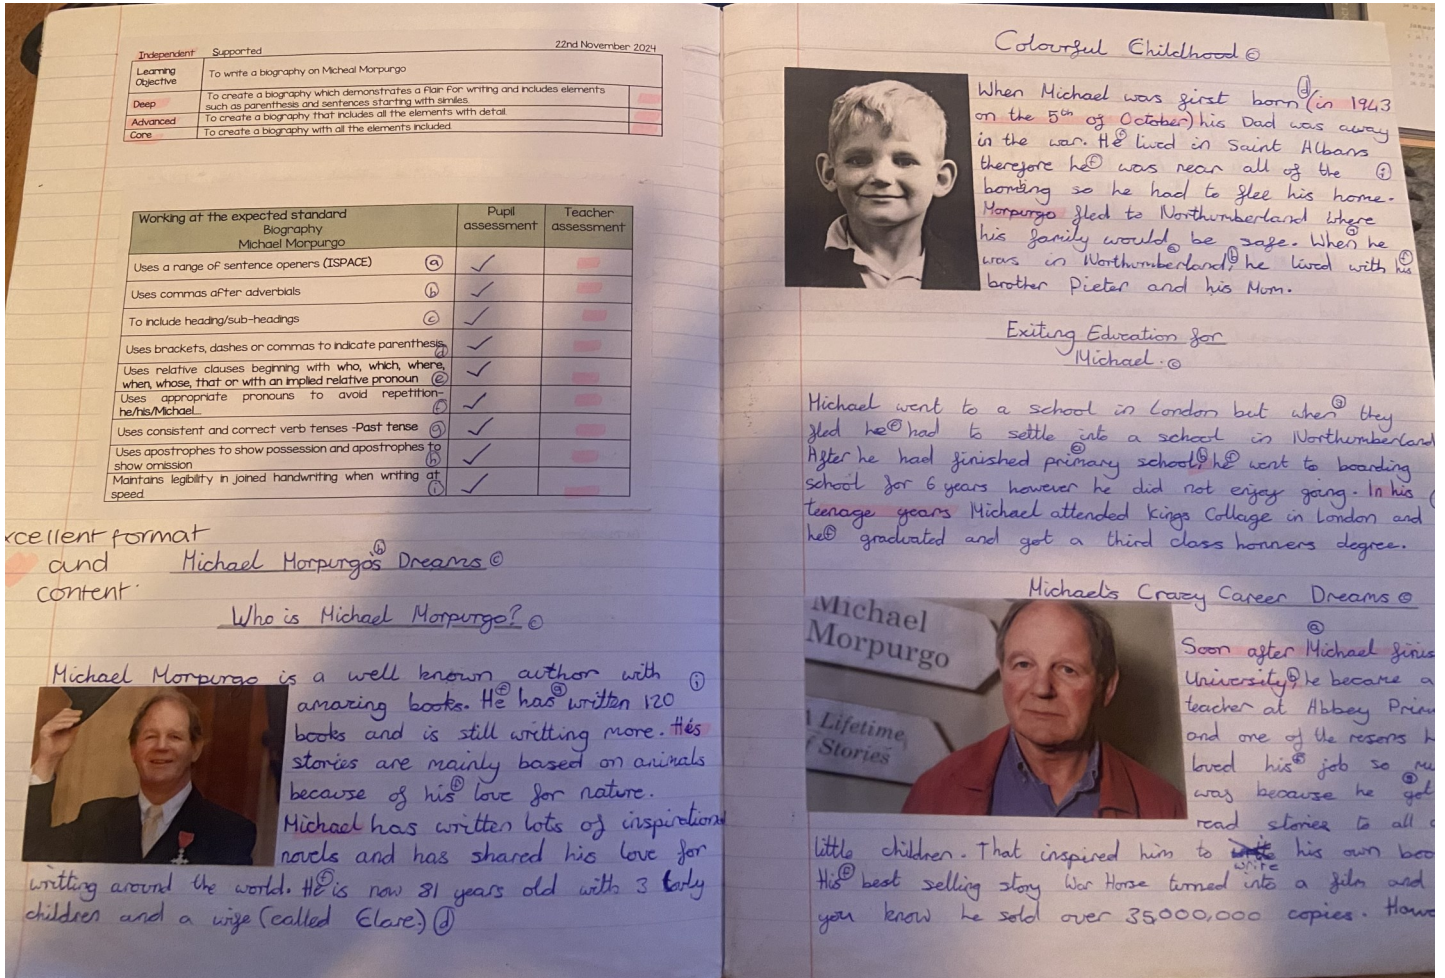 Independent Supported 22nd November 2024
Learning Objective To write a biography on Micheal Morpurgo
Deep To create a biography which demonstrates a flair for writing and includes elements such as parenthesis and sentences starting with similes.
Advanced To create a biography that includes all the elements with detail.
Core To create a biography with all the elements included.
Working at the expected standard
Biography
Michael Morpurgo
Pupil assessment
Teacher assessment
Uses a range of sentence openers (ISPACE) a
Uses commas after adverbials b
To include heading/sub-headings c
Uses brackets, dashes or commas to indicate parenthesis d
Uses relative clauses beginning with who, which, where,
when, whose, that or with an implied relative pronoun e
Uses appropriate pronouns to avoid repetition-
he/his/Michael... f
Uses consistent and correct verb tenses -Past tense g
Uses apostrophes to show possession and apostrophes to
show omission h
Maintains legibility in joined handwriting when writing at
speed i
xcellent format
and
content.
Michael Morpurgo's Dreams c
Who is Michael Morpurgo? c
Michael Morpurgo is a well known author with
amazing books. He has written 120
books and is still writting more. His
stories are mainly based on animals
because of his love for nature.
Michael has written lots of inspirational
novels and has shared his love for
writting around the world. He is now 81 years old with 3
children and a wife (called Clare.) d
Colourful Childhood c
When Michael was first born (in 1943
on the 5th of October) his Dad was away
in the war. He lived in Saint Albans
therefore he was near all of the
bombing so he had to flee his home.
Morpurgo fled to Northumberland where
his family would be safe. When he
was in Northumberland, he lived with his
brother Pieter and his Mum.
Exiting Education for
Michael. c
Michael went to a school in London but when they
fled he had to settle into a school in Northumberland
After he had finished primary school, he went to boarding
school for 6 years however he did not enjoy going. In his
teenage years Michael attended Kings Collage in London and
he graduated and got a third class honners degree.
Michael's Crazy Career Dreams c
Michael
Morpurgo
A Lifetime
of Stories
Soon after Michael finis
University, he became a
teacher at Abbey Prim
and one of the resons h
loved his job so mu
was because he got
read stories to all o
little children. That inspired him to write his own boo
His best selling story War Horse turned into a film and
you know he sold over 35000,000 copies. Howe